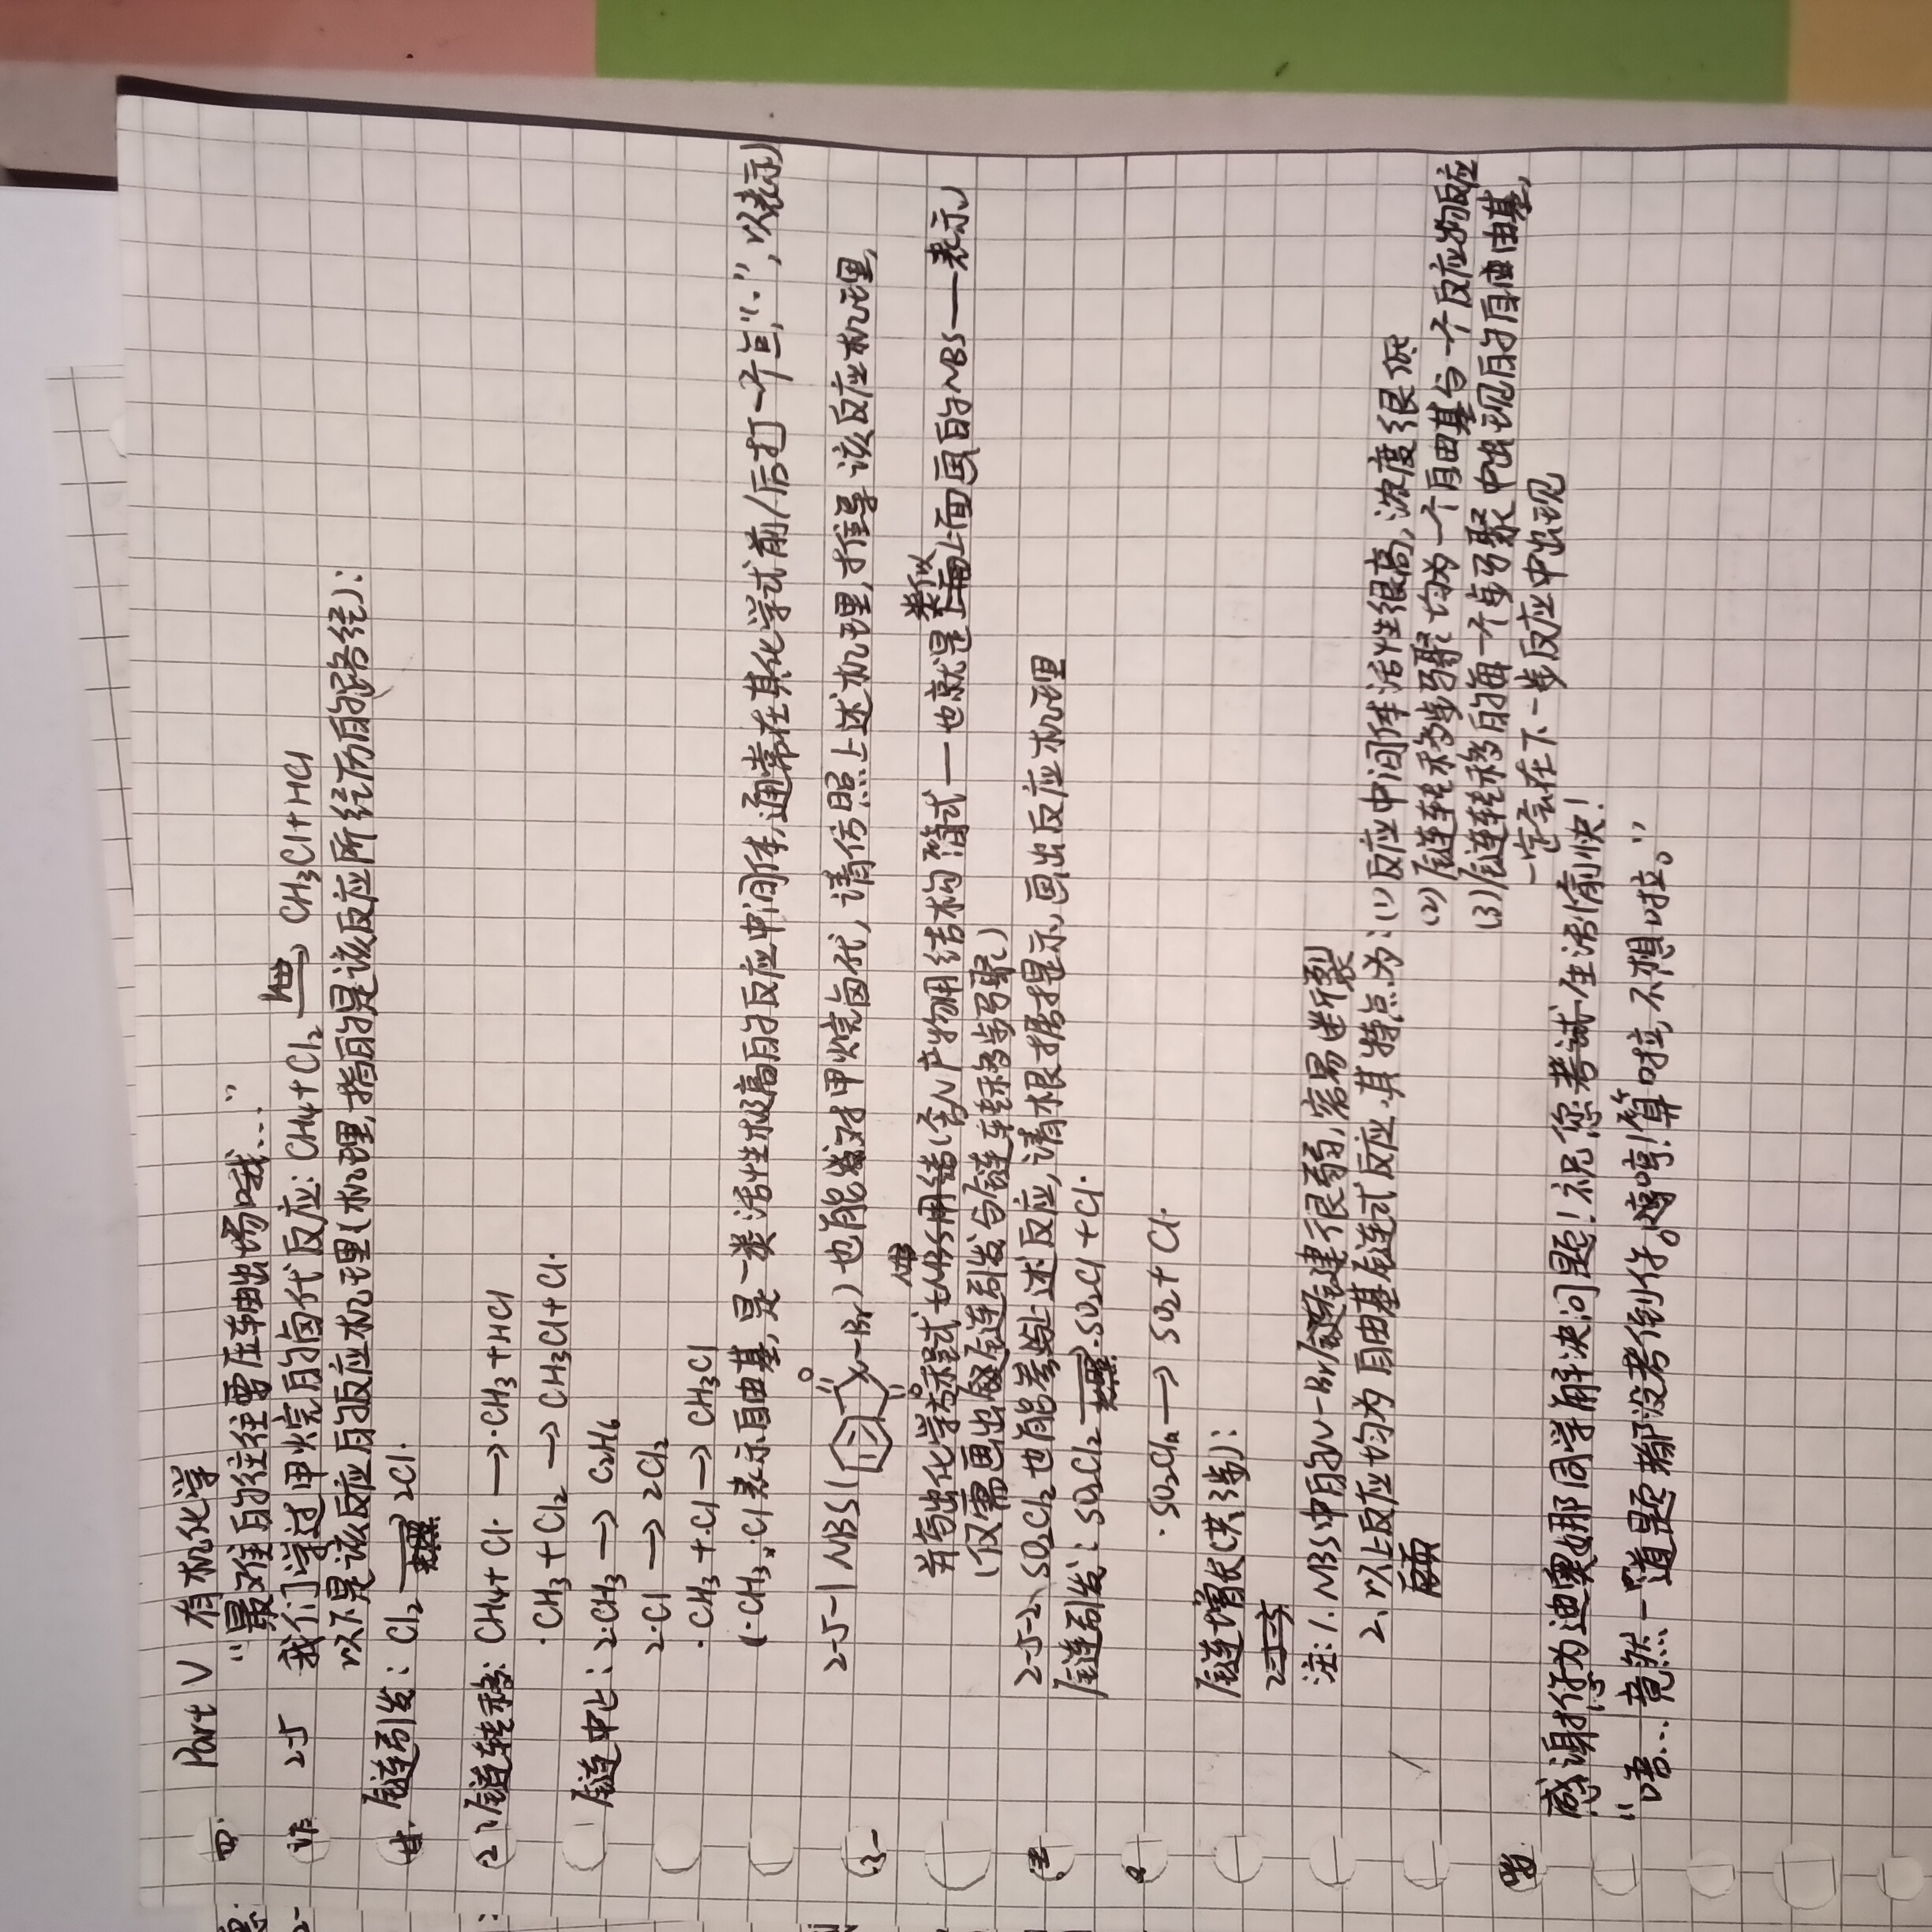 Part V 有机化学
“最难的往往要压轴出场哦...”
2-5 我们学过甲烷的卤代反应: CH₄+Cl₂ → CH₃Cl+HCl
以下是该反应的反应机理(机理,指的是该反应所经历的路径):
链引发: Cl₂ →光照 2Cl·
链转移: CH₄+Cl· → ·CH₃+HCl
·CH₃+Cl₂ → CH₃Cl+Cl·
链中止: 2·CH₃ → C₂H₆
2·Cl → 2Cl₂
·CH₃+·Cl → CH₃Cl
(·CH₃,·Cl表示自由基,是一类活性极高的反应中间体,通常在其化学式前/后打一个点“·”,以表示)
2-5-1 NBS( O O N-Br)也能对甲烷卤代,请仿照上述机理,推导该反应机理,
并写出化学方程式(含N产物用结构简式—也就是类似上面画的NBS—表示)
(仅需画出链引发与链转移步骤)
2-5-2、SO₂Cl₂也能参与上述反应,请根据提示,画出反应机理
链引发: SO₂Cl₂ →光照 ·SO₂Cl+Cl·
·SO₂Cl → SO₂+Cl·
链增长(共3步):
注: 1. NBS中的N-Br键很弱,容易断裂
2. 以上反应均为自由基链式反应,其特点为:(1)反应中间体活性很高,浓度很低
(2)链转移步骤均为一个自由基与一个反应物反应
(3)链转移的每一个步骤中出现的自由基,
一定会在下一步反应中出现
感谢您为迪奥娜同学解决问题!祝您生活愉快!
“唔...竟然一道题都没考倒你。哼!算啦,不想啦。”